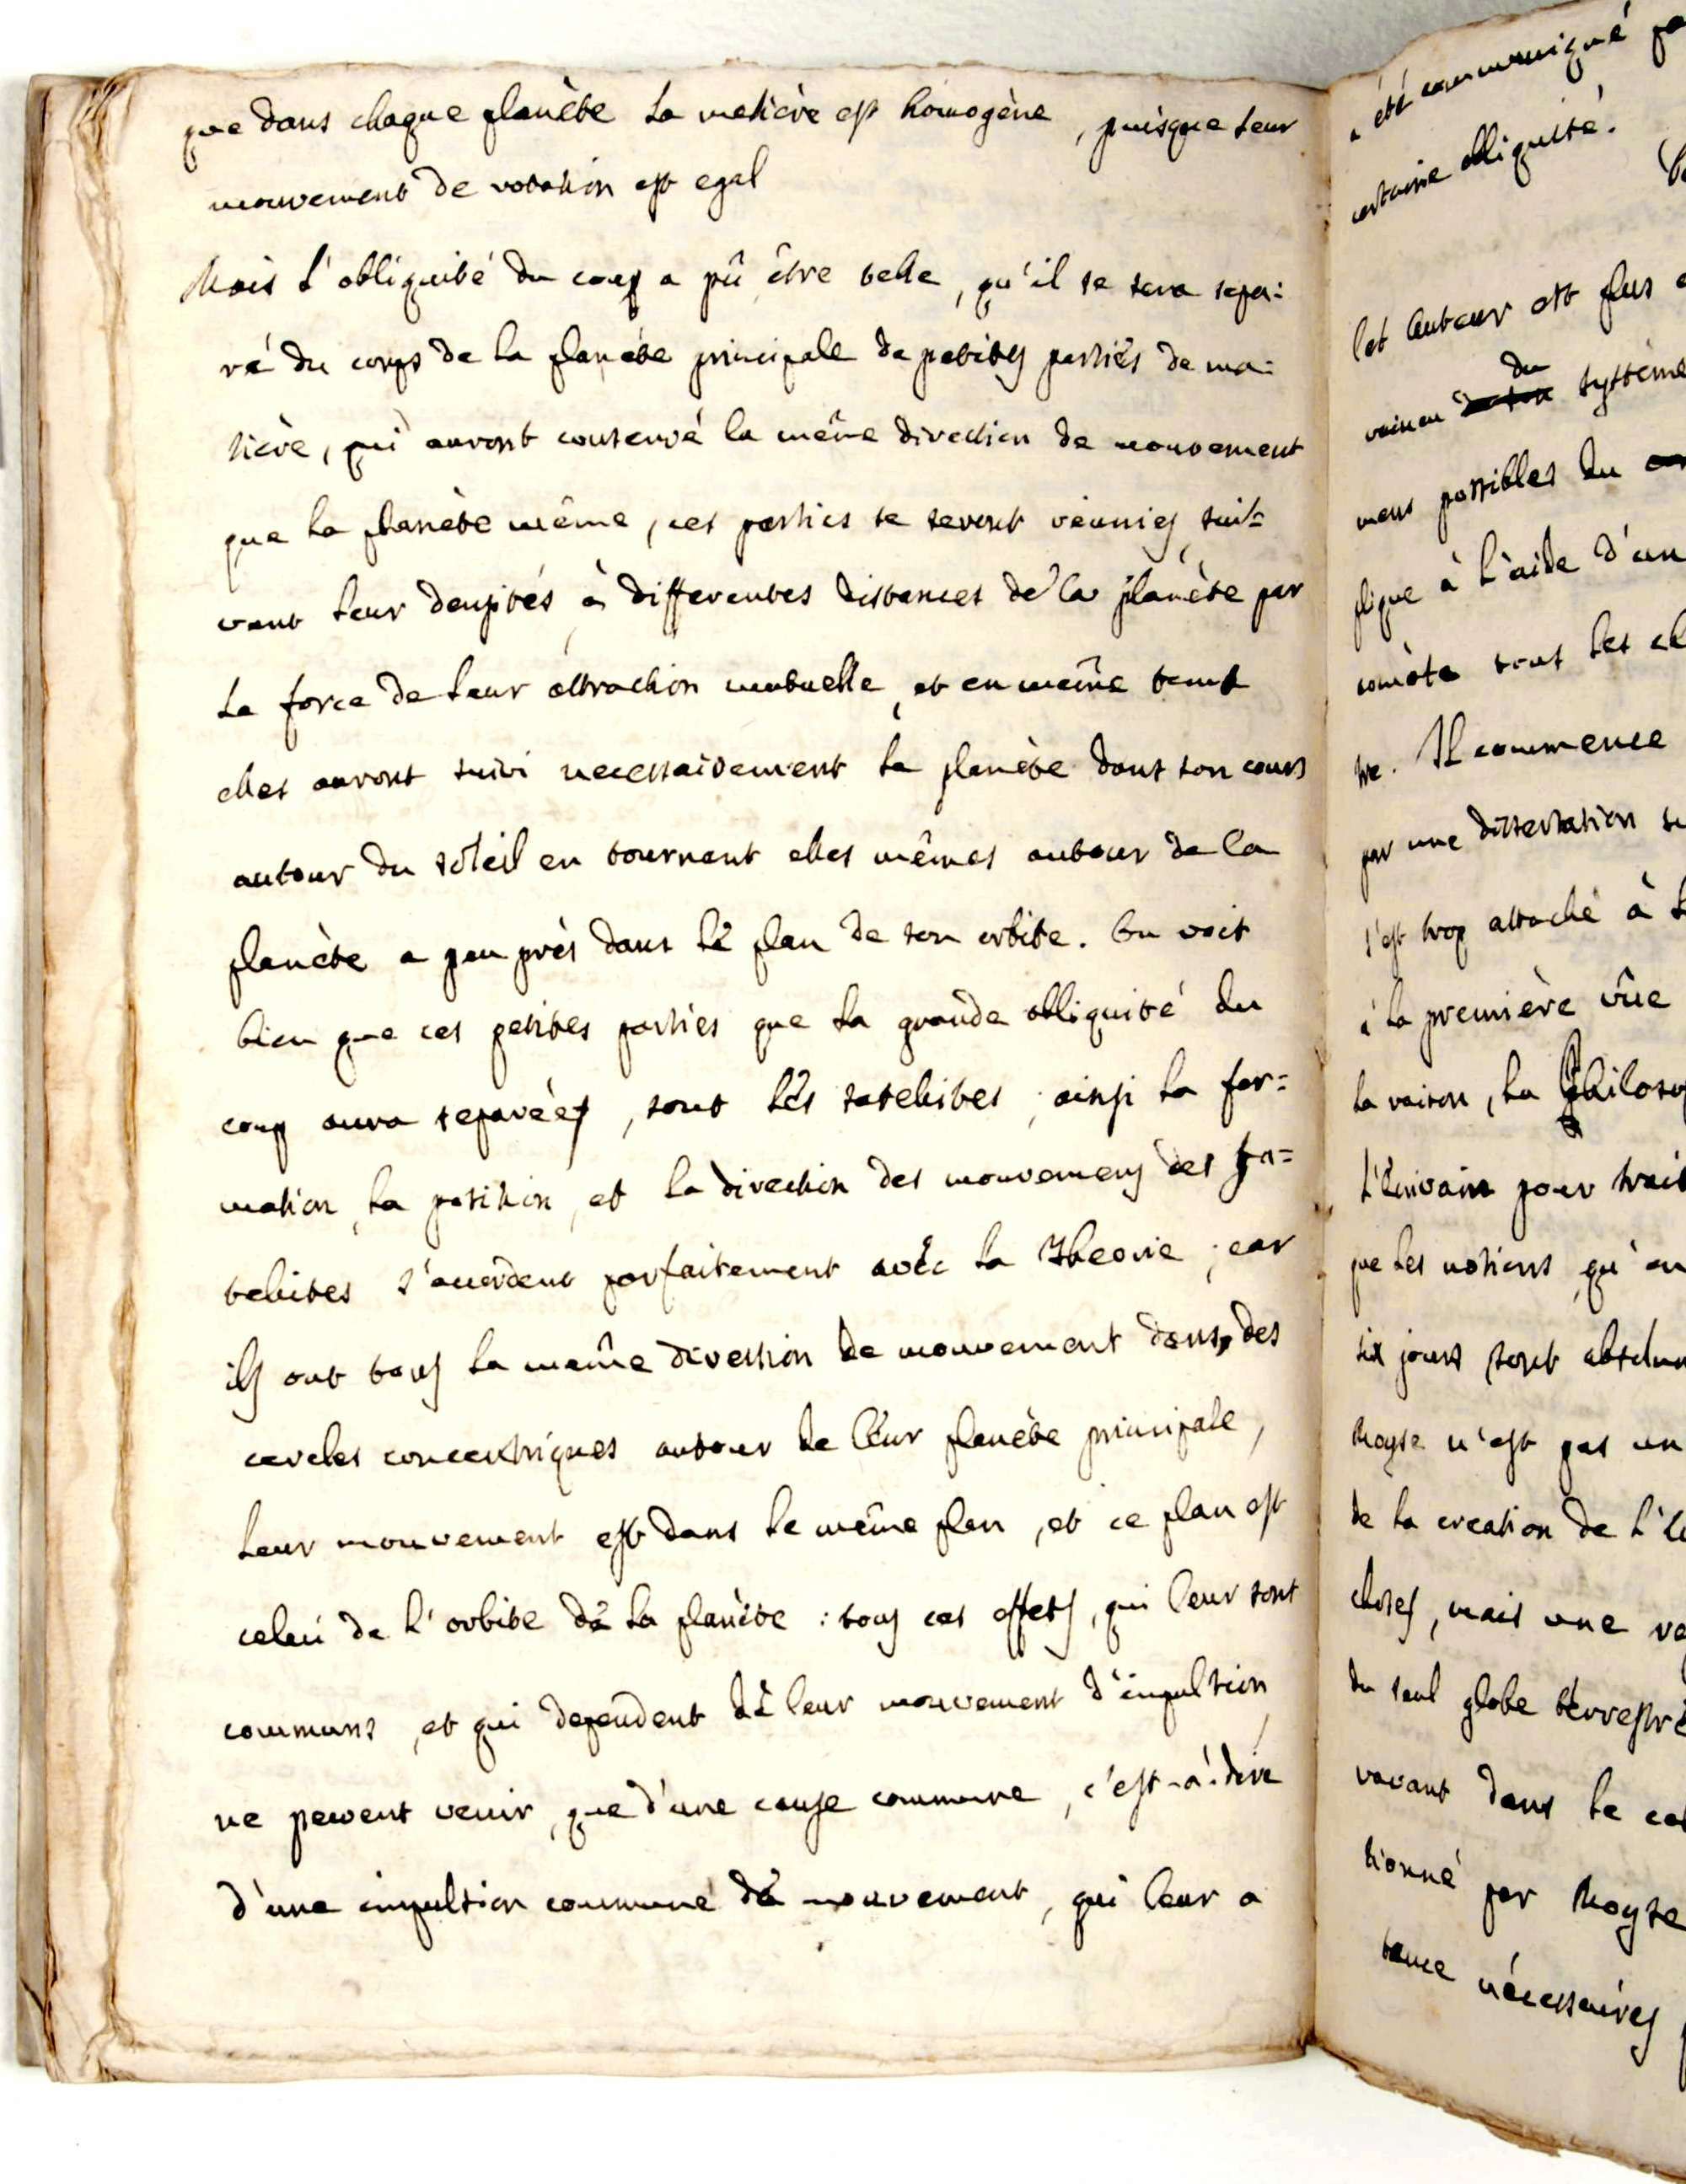 que dans chaque planète la matière est homogène, puisque leur
mouvement de rotation est egal
Mais l'obliquité du coup a pû être telle, qu'il se sera sepa:
ré du corps de la planète principale de petites parties de ma:
tière, qui auront conservé la même direction de mouvement
que la planète même, ces parties se seront réunies, sui=
vant leur densités à differentes distances de la planète par
la force de leur attraction mutuelle, et en même tems
elles auront suivi necessairement la planète dans son cours
autour du soleil en tournant elles mêmes autour de la
planète a peu près dans le plan de son orbite. On voit
bien que ces petites parties que la grande obliquité du
coup aura separées, sont les satelites; ainsi la for=
mation, la position, et la direction des mouvemens des sa=
telites s'accordent parfaitement avec la Theorie; car
ils ont tous la même direction de mouvement dans des
cercles concentriques autour de leur planète principale,
leur mouvement est dans le même plan, et ce plan est
celui de l'orbite de la planète: tous ces effets, qui leur sont
communs, et qui dependent de leur mouvement d'impulsion,
ne peuvent venir, que d'une cause commune, c'est-à-dire
d'une impulsion commune de mouvement, qui leur a
a été communiqué
certaine obliquité.
Cet Auteur est plus
vaincu du système
mens possibles du
plique à l'aide d'un
comète tous les
tre. Il commence
par une dissertation
s'est trop attaché à
à la première vûe
la raison, la
L'Ecrivain pour
que les notions, qu'on
six jours sont
Moyse n'est pas un
de la creation de
choses, mais une
du seul globe terrestre
vavant dans le
tionné par Moyse
tance nécessaires